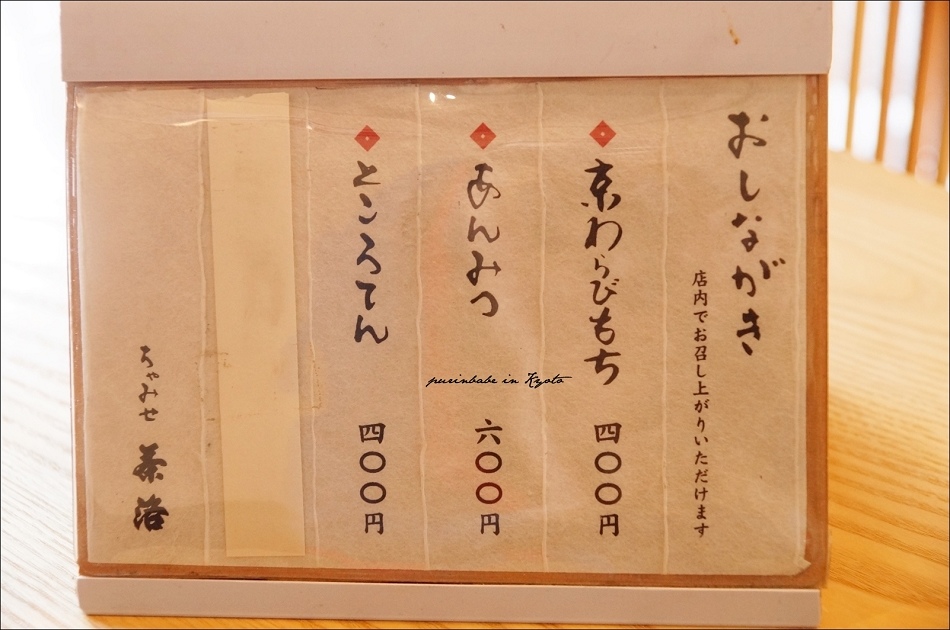 おしながき
店内でお召し上がりいただけます
京わらびもち 四〇〇円
あんみつ 六〇〇円
ところてん 四〇〇円
ちゃみせ 茶洛
purinbabe in Kyoto